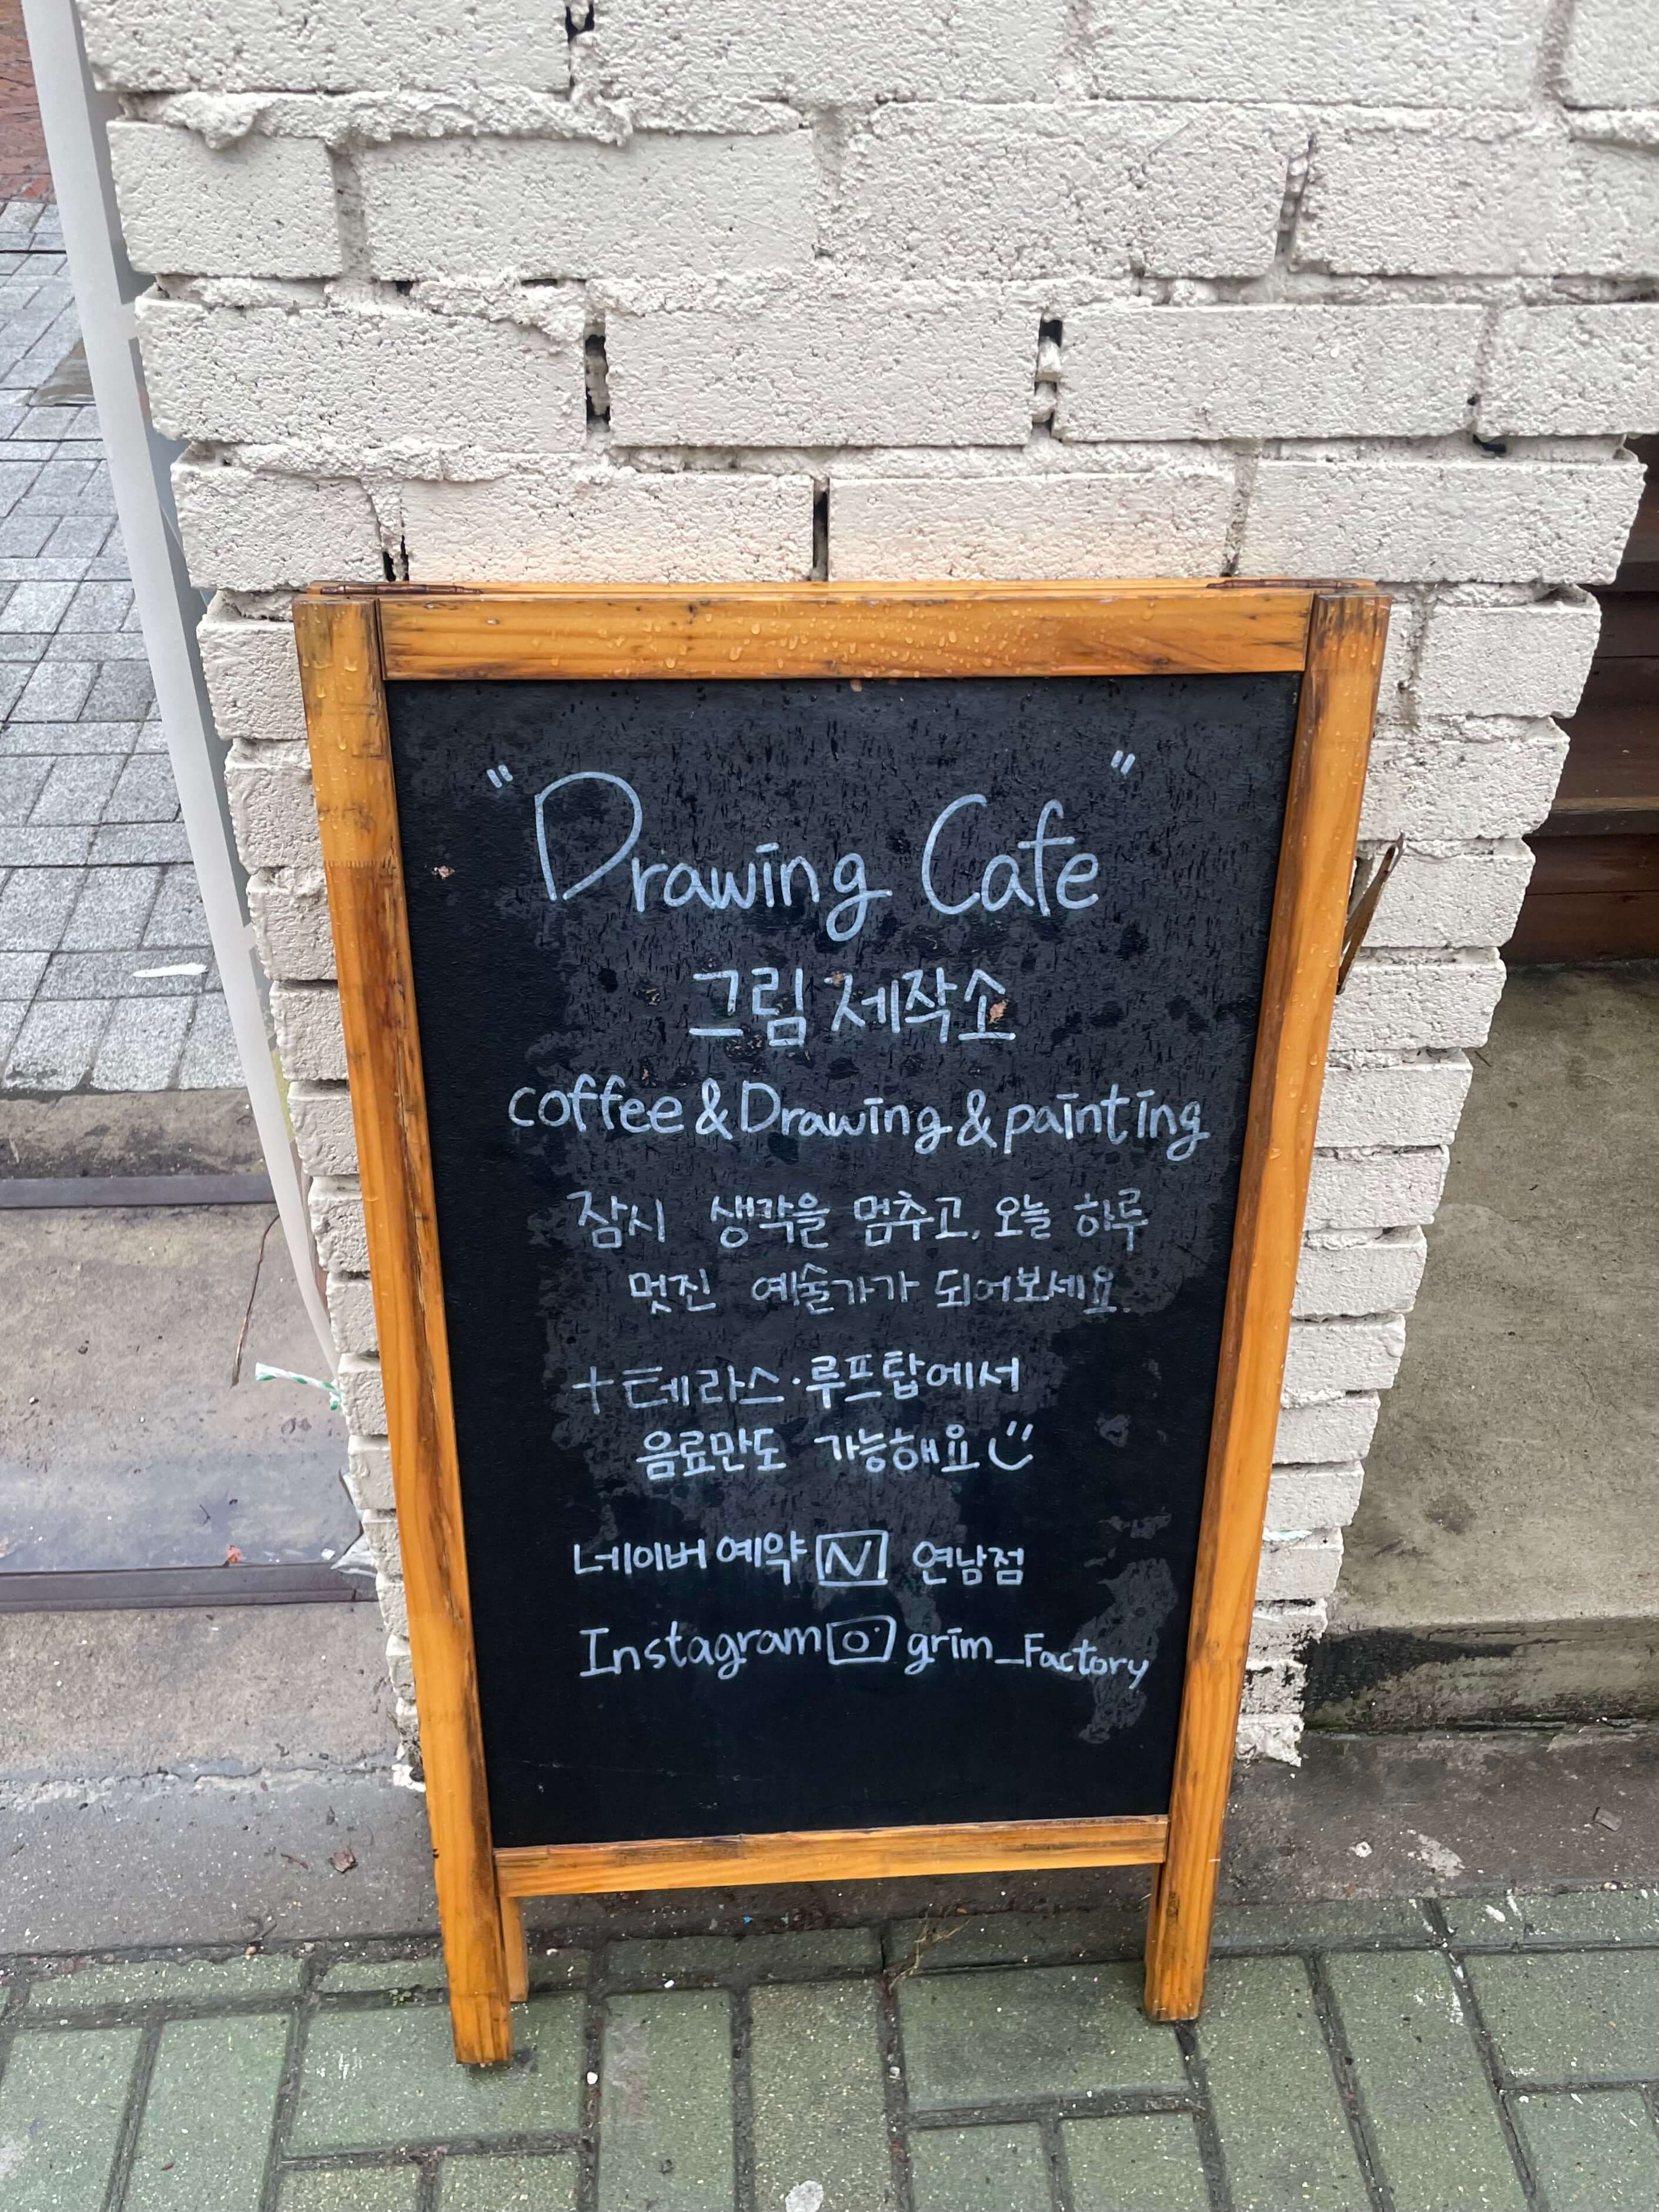 "Drawing Cafe"
그림 제작소
coffee&Drawing&painting
잠시 생각을 멈추고, 오늘 하루
멋진 예술가가 되어보세요.
+테라스·루프탑에서
음료만도 가능해요
네이버 예약 N 연남점
Instagram grim_Factory